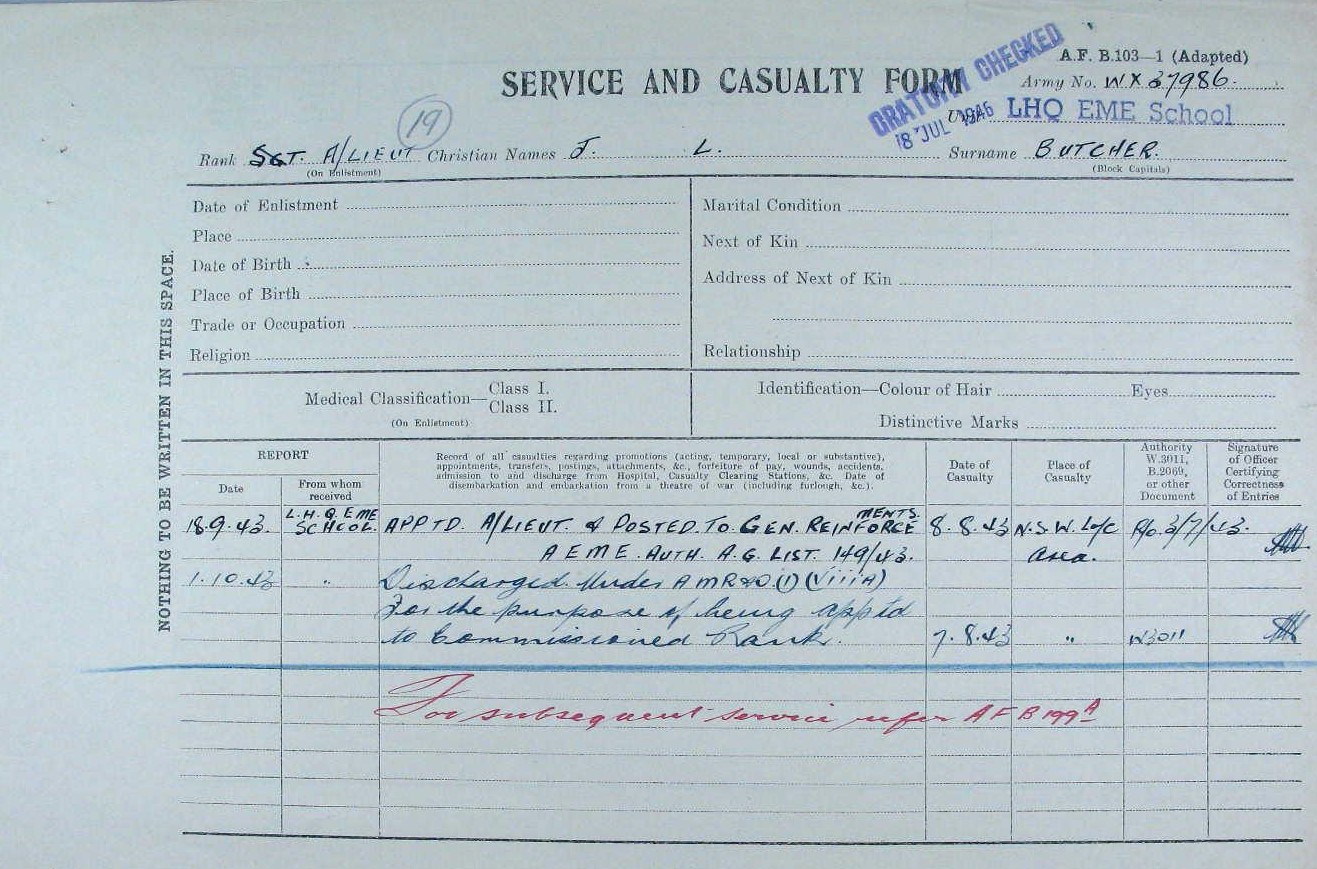 A.F. B.103—1 (Adapted)
SERVICE AND CASUALTY FORM
GRATUITY CHECKED
18 JUL 1946
Army No. WX 37986.
Unit LHQ EME School
19
Rank SGT. A/LIEUT Christian Names J. L. Surname BUTCHER.
(On Enlistment) (Block Capitals)
Date of Enlistment
Place
Date of Birth
Place of Birth
Trade or Occupation
Religion
Marital Condition
Next of Kin
Address of Next of Kin
Relationship
Medical Classification— Class I.
Class II.
(On Enlistment)
Identification—Colour of Hair Eyes
Distinctive Marks
NOTHING TO BE WRITTEN IN THIS SPACE.
REPORT
Date
From whom received
Record of all casualties regarding promotions (acting, temporary, local or substantive),
appointments, transfers, postings, attachments, &c., forfeiture of pay, wounds, accidents,
admission to and discharge from Hospital, Casualty Clearing Stations, &c. Date of
disembarkation and embarkation from a theatre of war (including furlough, &c.).
Date of Casualty
Place of Casualty
Authority W.3011, B.2069, or other Document
Signature of Officer Certifying Correctness of Entries
18.9.43. L.H.Q EME SCHOOL. APPTD. A/LIEUT. & POSTED. TO. GEN. REINFORCEMENTS. 8.8.43 N.S.W. L of C 3/7/43.
A E M E. AUTH. A.G. LIST. 149/43. area.
1.10.43 " Discharged. Under A M R & O. (1) (viiiA)
For the purpose of being app'td
to Commissioned Rank. 7.8.43 " W3011
For subsequent service refer A F B 199A